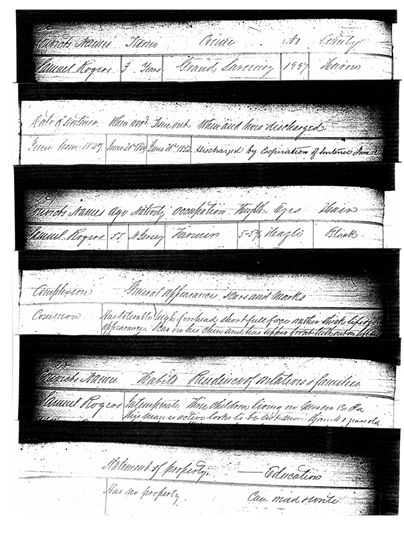 Convicts Names Terms Crime No County
Samuel Rogers 3 Years Grand Larceny Huron
Date of sentence When rec'd Time out When and how discharged
June Term 1849 June 20th 1849 June 20th 1852 Discharged by Expiration of Sentence June
Convicts Names Age Nativity Occupation Height Eyes Hair
Samuel Rogers N Jersey Farmer Hazle Black
Complexion General appearance scars and marks
Common Has tolerable high forehead short full face rather thick lips of
appearance Scar on his chin and has upper front teeth
Convicts Names Habits Residence of relations & families
Samuel Rogers Intemperate Three children living in Mercer Co Pa
This man is active looks to be
Statement of property Education
Has no property Can read & write